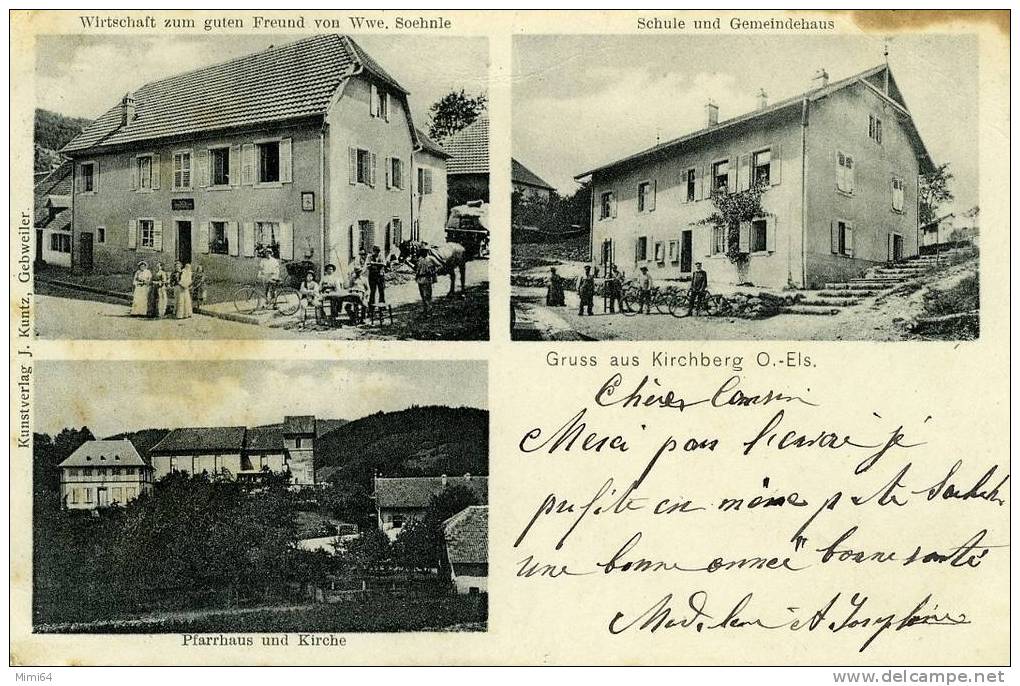 Wirtschaft zum guten Freund von Wwe. Soehnle
Schule und Gemeindehaus
Kunstverlag J. Kuntz, Gebweiler.
Gruss aus Kirchberg O.-Els.
Chère Cousin
Merci pour l'envoie je
profite en même
une bonne année bonne santé
Madelaine et Josephine
Pfarrhaus und Kirche
Mimi64
www.delcampe.net